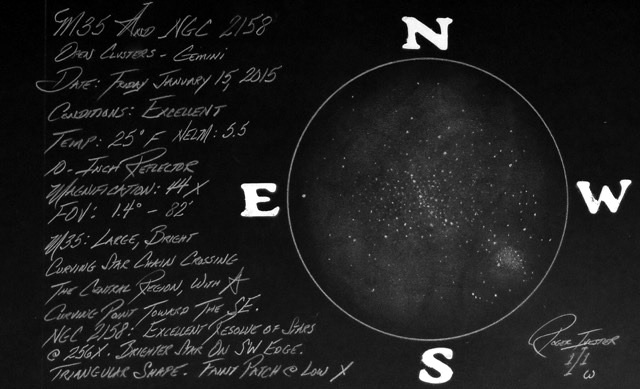 M35 And NGC 2158
Open Clusters - Gemini
Date: Friday January 15, 2015
Conditions: Excellent
Temp: 25° F NELM: 5.5
10-Inch Reflector
Magnification: 44 X
FOV: 1.4° - 82'
M35: Large, Bright
Curving Star Chain Crossing
The Central Region, With A
Curving Point Toward The SE.
NGC 2158: Excellent Resolve of Stars
@ 256X. Brighter Star On SW Edge.
Triangular Shape. Faint Patch @ Low X
N
E
W
S
Roger